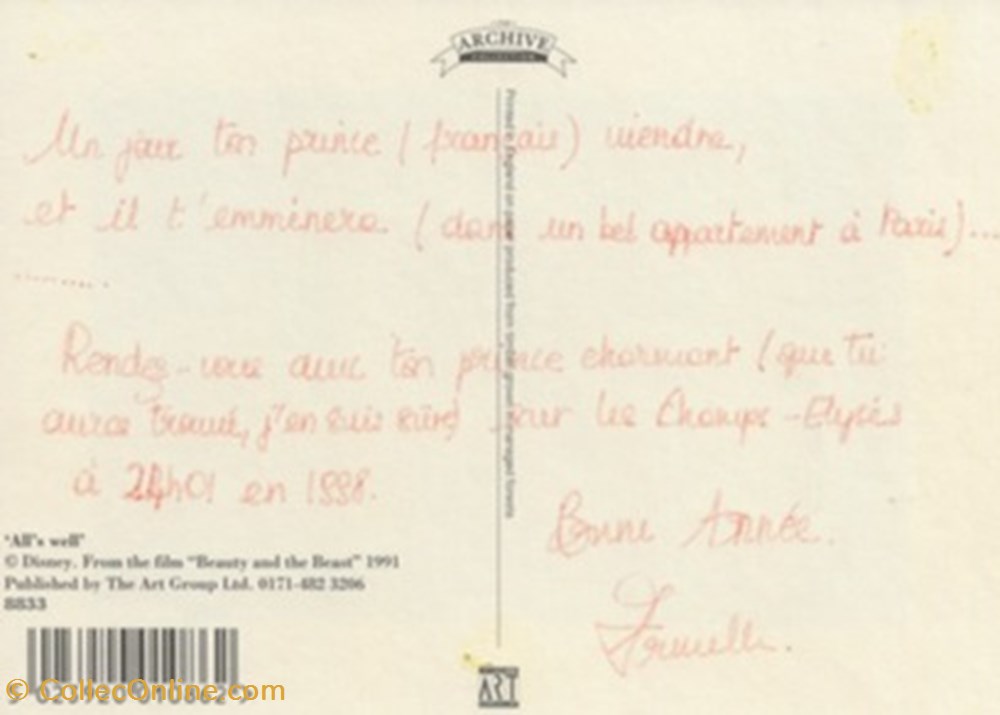 ARCHIVE
COLLECTION
Un jour ton prince (français) viendra,
et il t'emminera (dans un bel appartement à Paris)...
..........
Rendez-vous avec ton prince charmant (que tu
auras trouvé, j'en suis sûre) sur les Champs-Elysés
à 24h01 en 1998.
Bonne Année.
Printed in England on paper produced from managed forests
"All's well"
© Disney. From the film "Beauty and the Beast" 1991
Published by The Art Group Ltd. 0171-482 3206
8833
ART
© CollecOnline.com